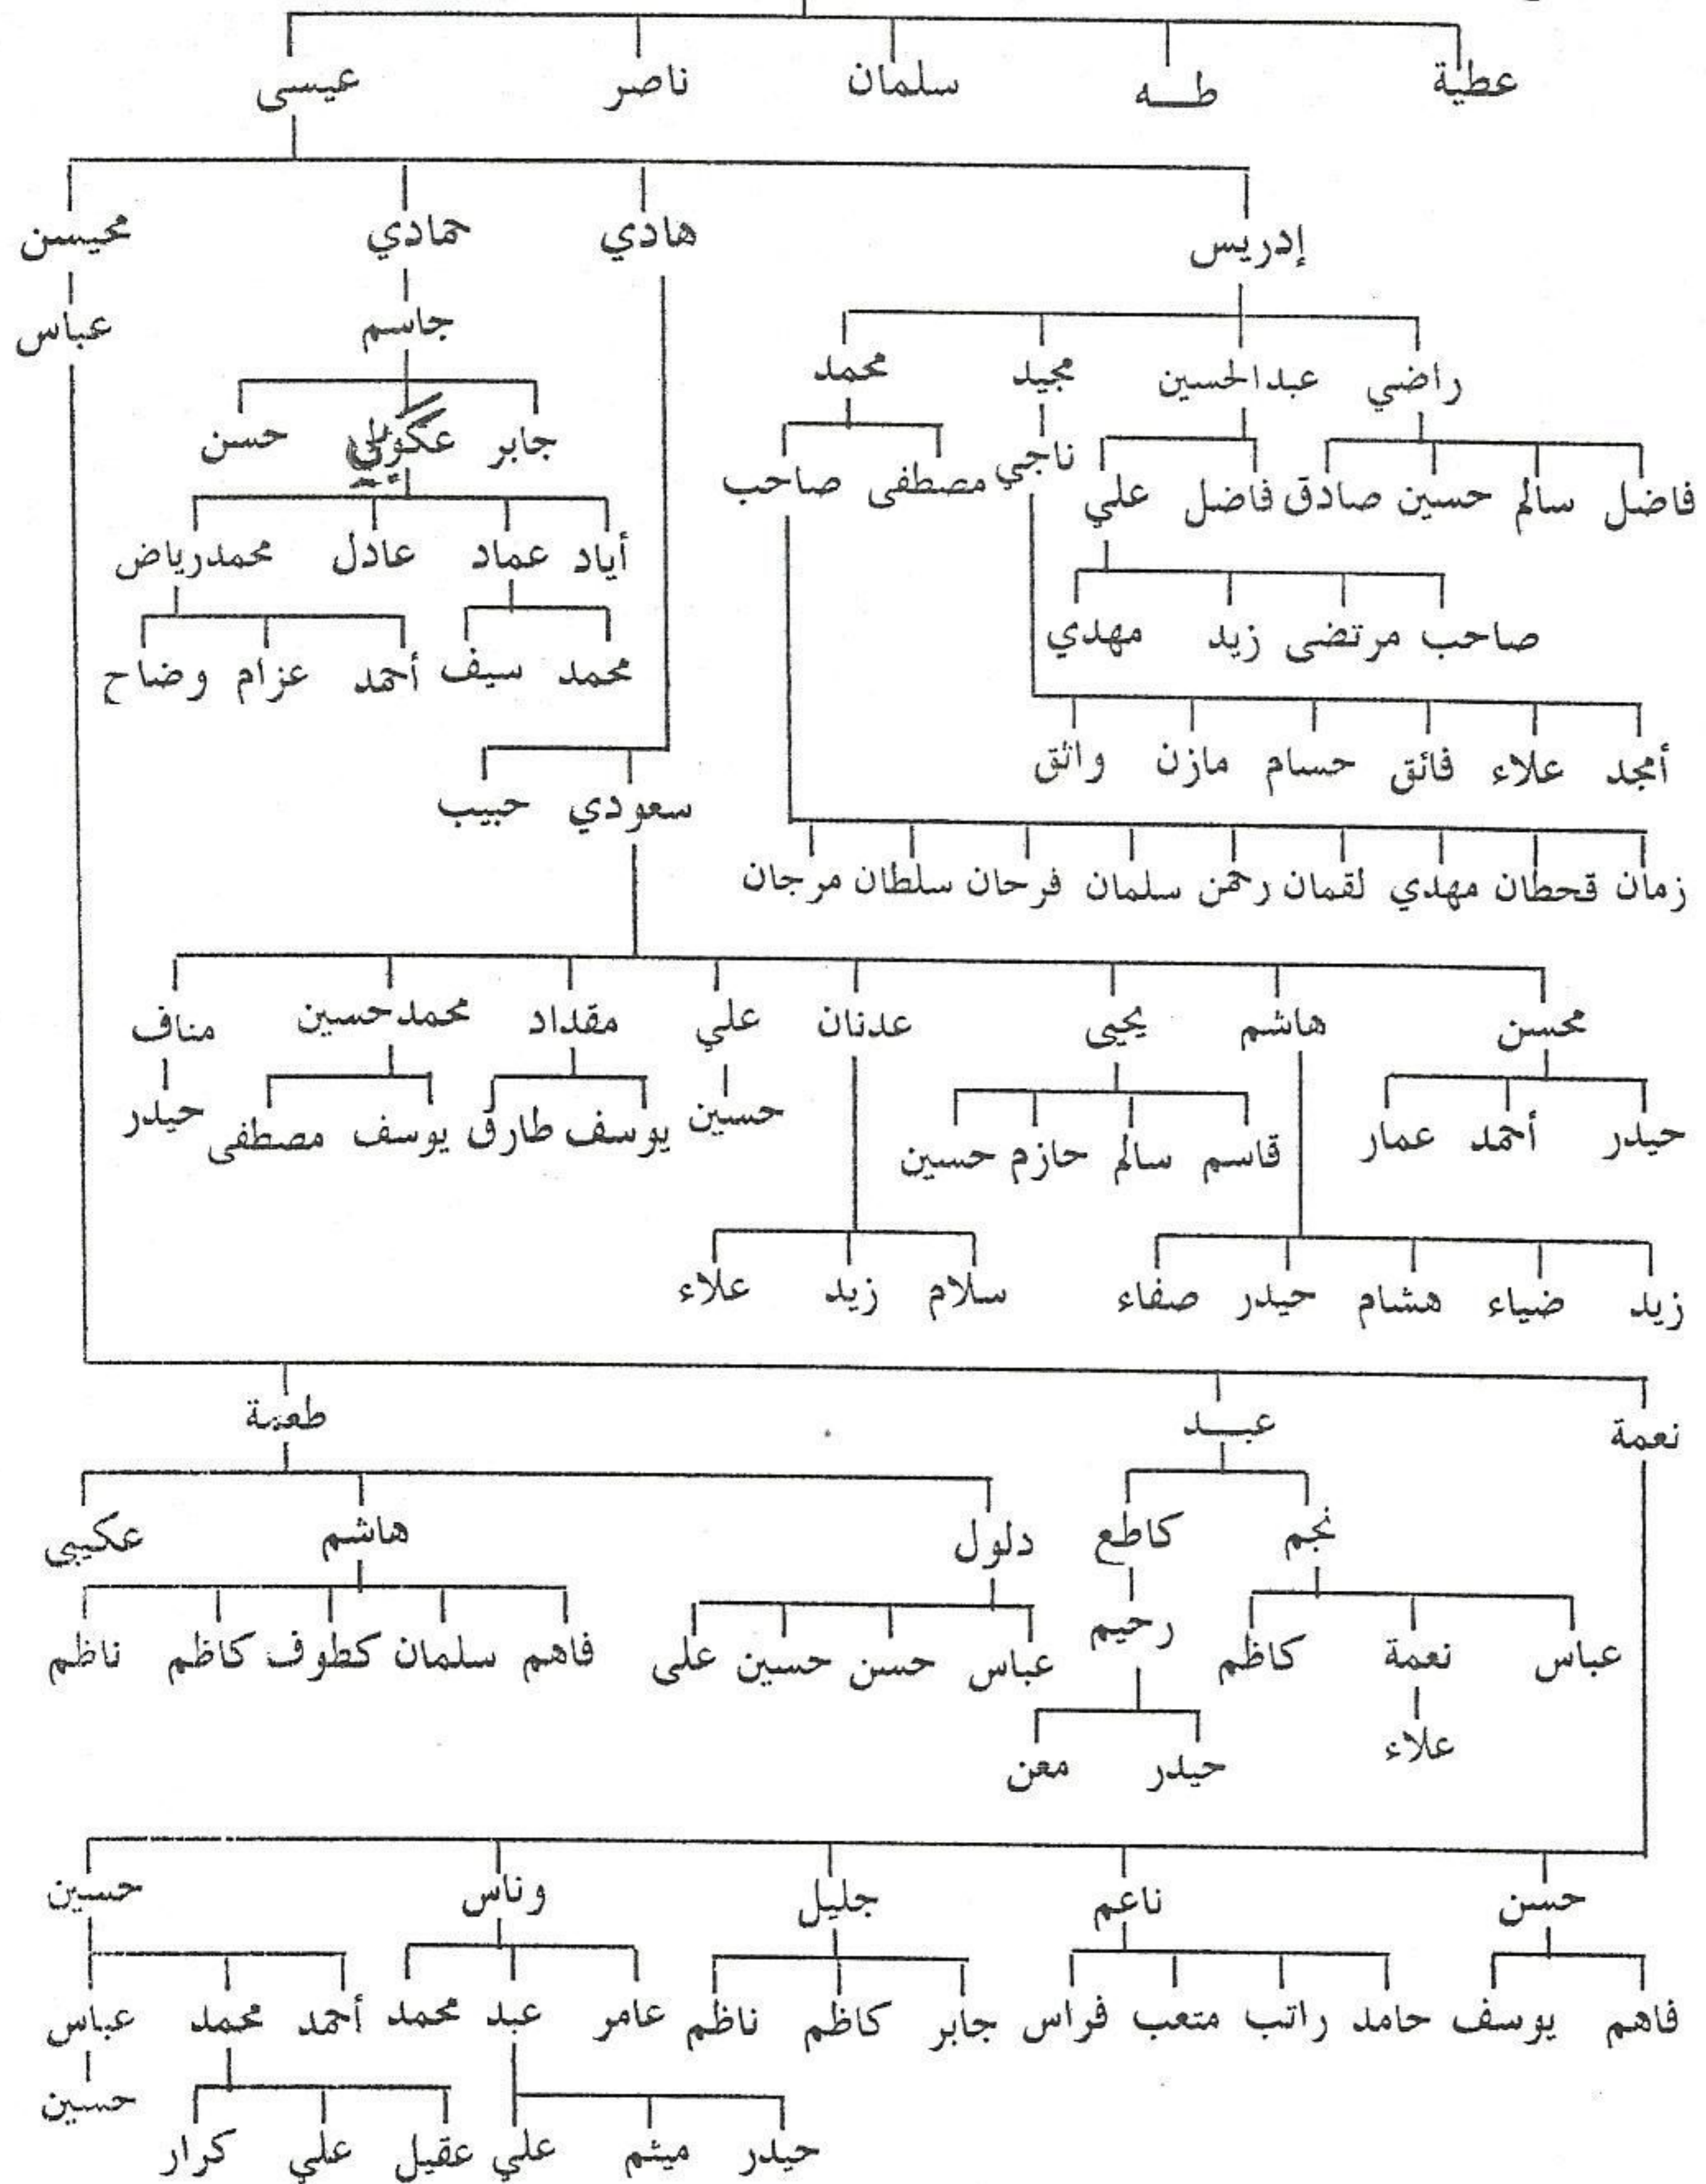 عطية طــه سلمان ناصر عيسى
إدريس هادي حمادي محيسن
جاسم عباس
راضي عبدالحسين مجيد محمد
جابر حسن
فاضل سالم حسين صادق فاضل علي ناجي مصطفى صاحب
أياد عماد عادل محمدرياض
صاحب مرتضى زيد مهدي
محمد سيف أحمد عزام وضاح
أمجد علاء فائق حسام مازن واثق
سعودي حبيب
زمان قحطان مهدي لقمان رحمن سلمان فرحان سلطان مرجان
محسن هاشم يحيى عدنان علي مقداد محمدحسين مناف
حيدر أحمد عمار قاسم سالم حازم حسين حسين يوسف طارق يوسف مصطفى حيدر
زيد ضياء هشام حيدر صفاء سلام زيد علاء
نعمة عبــد طعمة
نجم كاطع دلول هاشم عكيبى
عباس نعمة كاظم رحيم عباس حسن حسين على فاهم سلمان كطوف كاظم ناظم
علاء حيدر معن
حسن ناعم جليل وناس حسين
فاهم يوسف حامد راتب متعب فراس جابر كاظم ناظم عامر عبد محمد أحمد محمد عباس
حيدر ميثم علي عقيل علي كرار حسين